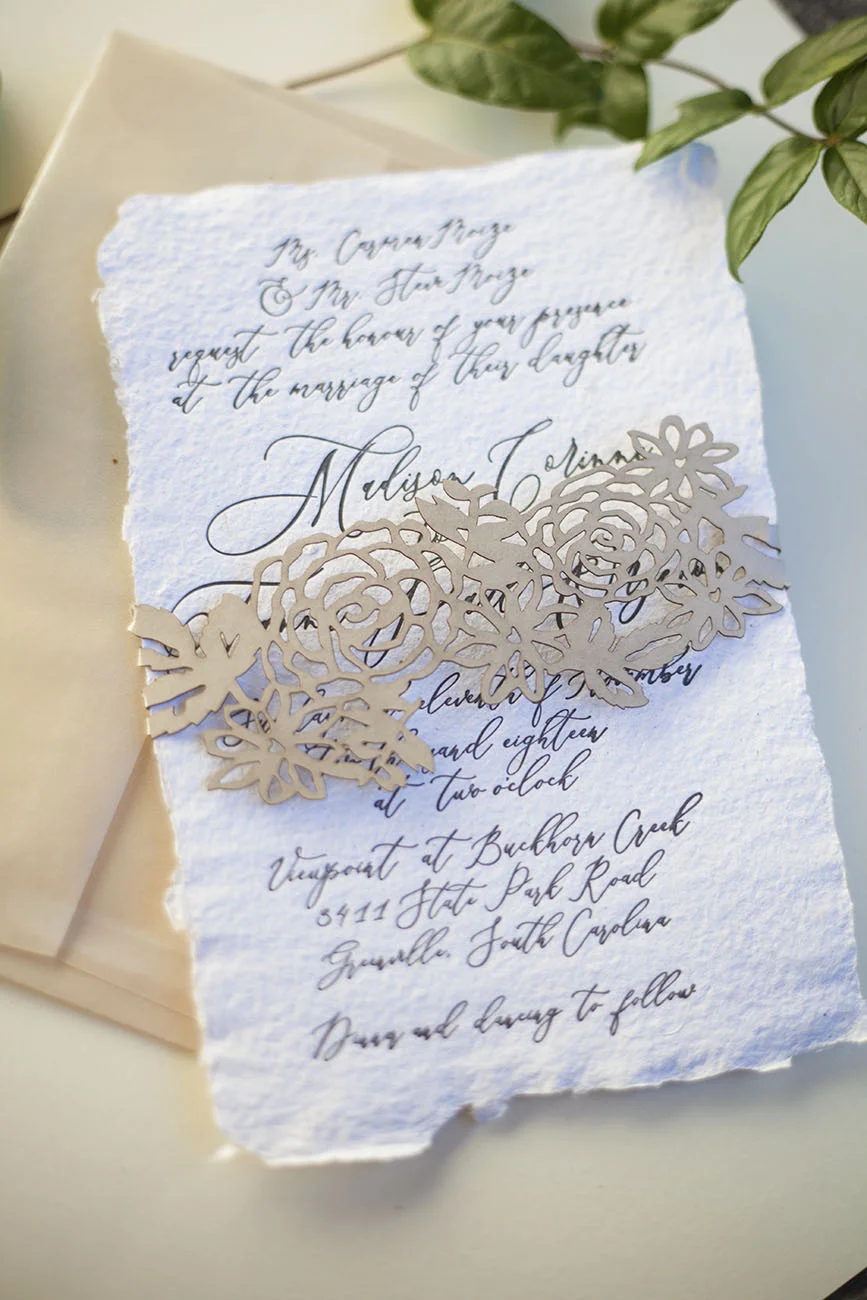 Ms. Carmen Moize
& Mr. Steve Moize
request the honour of your presence
at the marriage of their daughter
Madison Corinne
eleventh of
eighteen
at two o'clock
Viewpoint at Buckhorn Creek
3411 State Park Road
Greenville, South Carolina
Dinner and dancing to follow